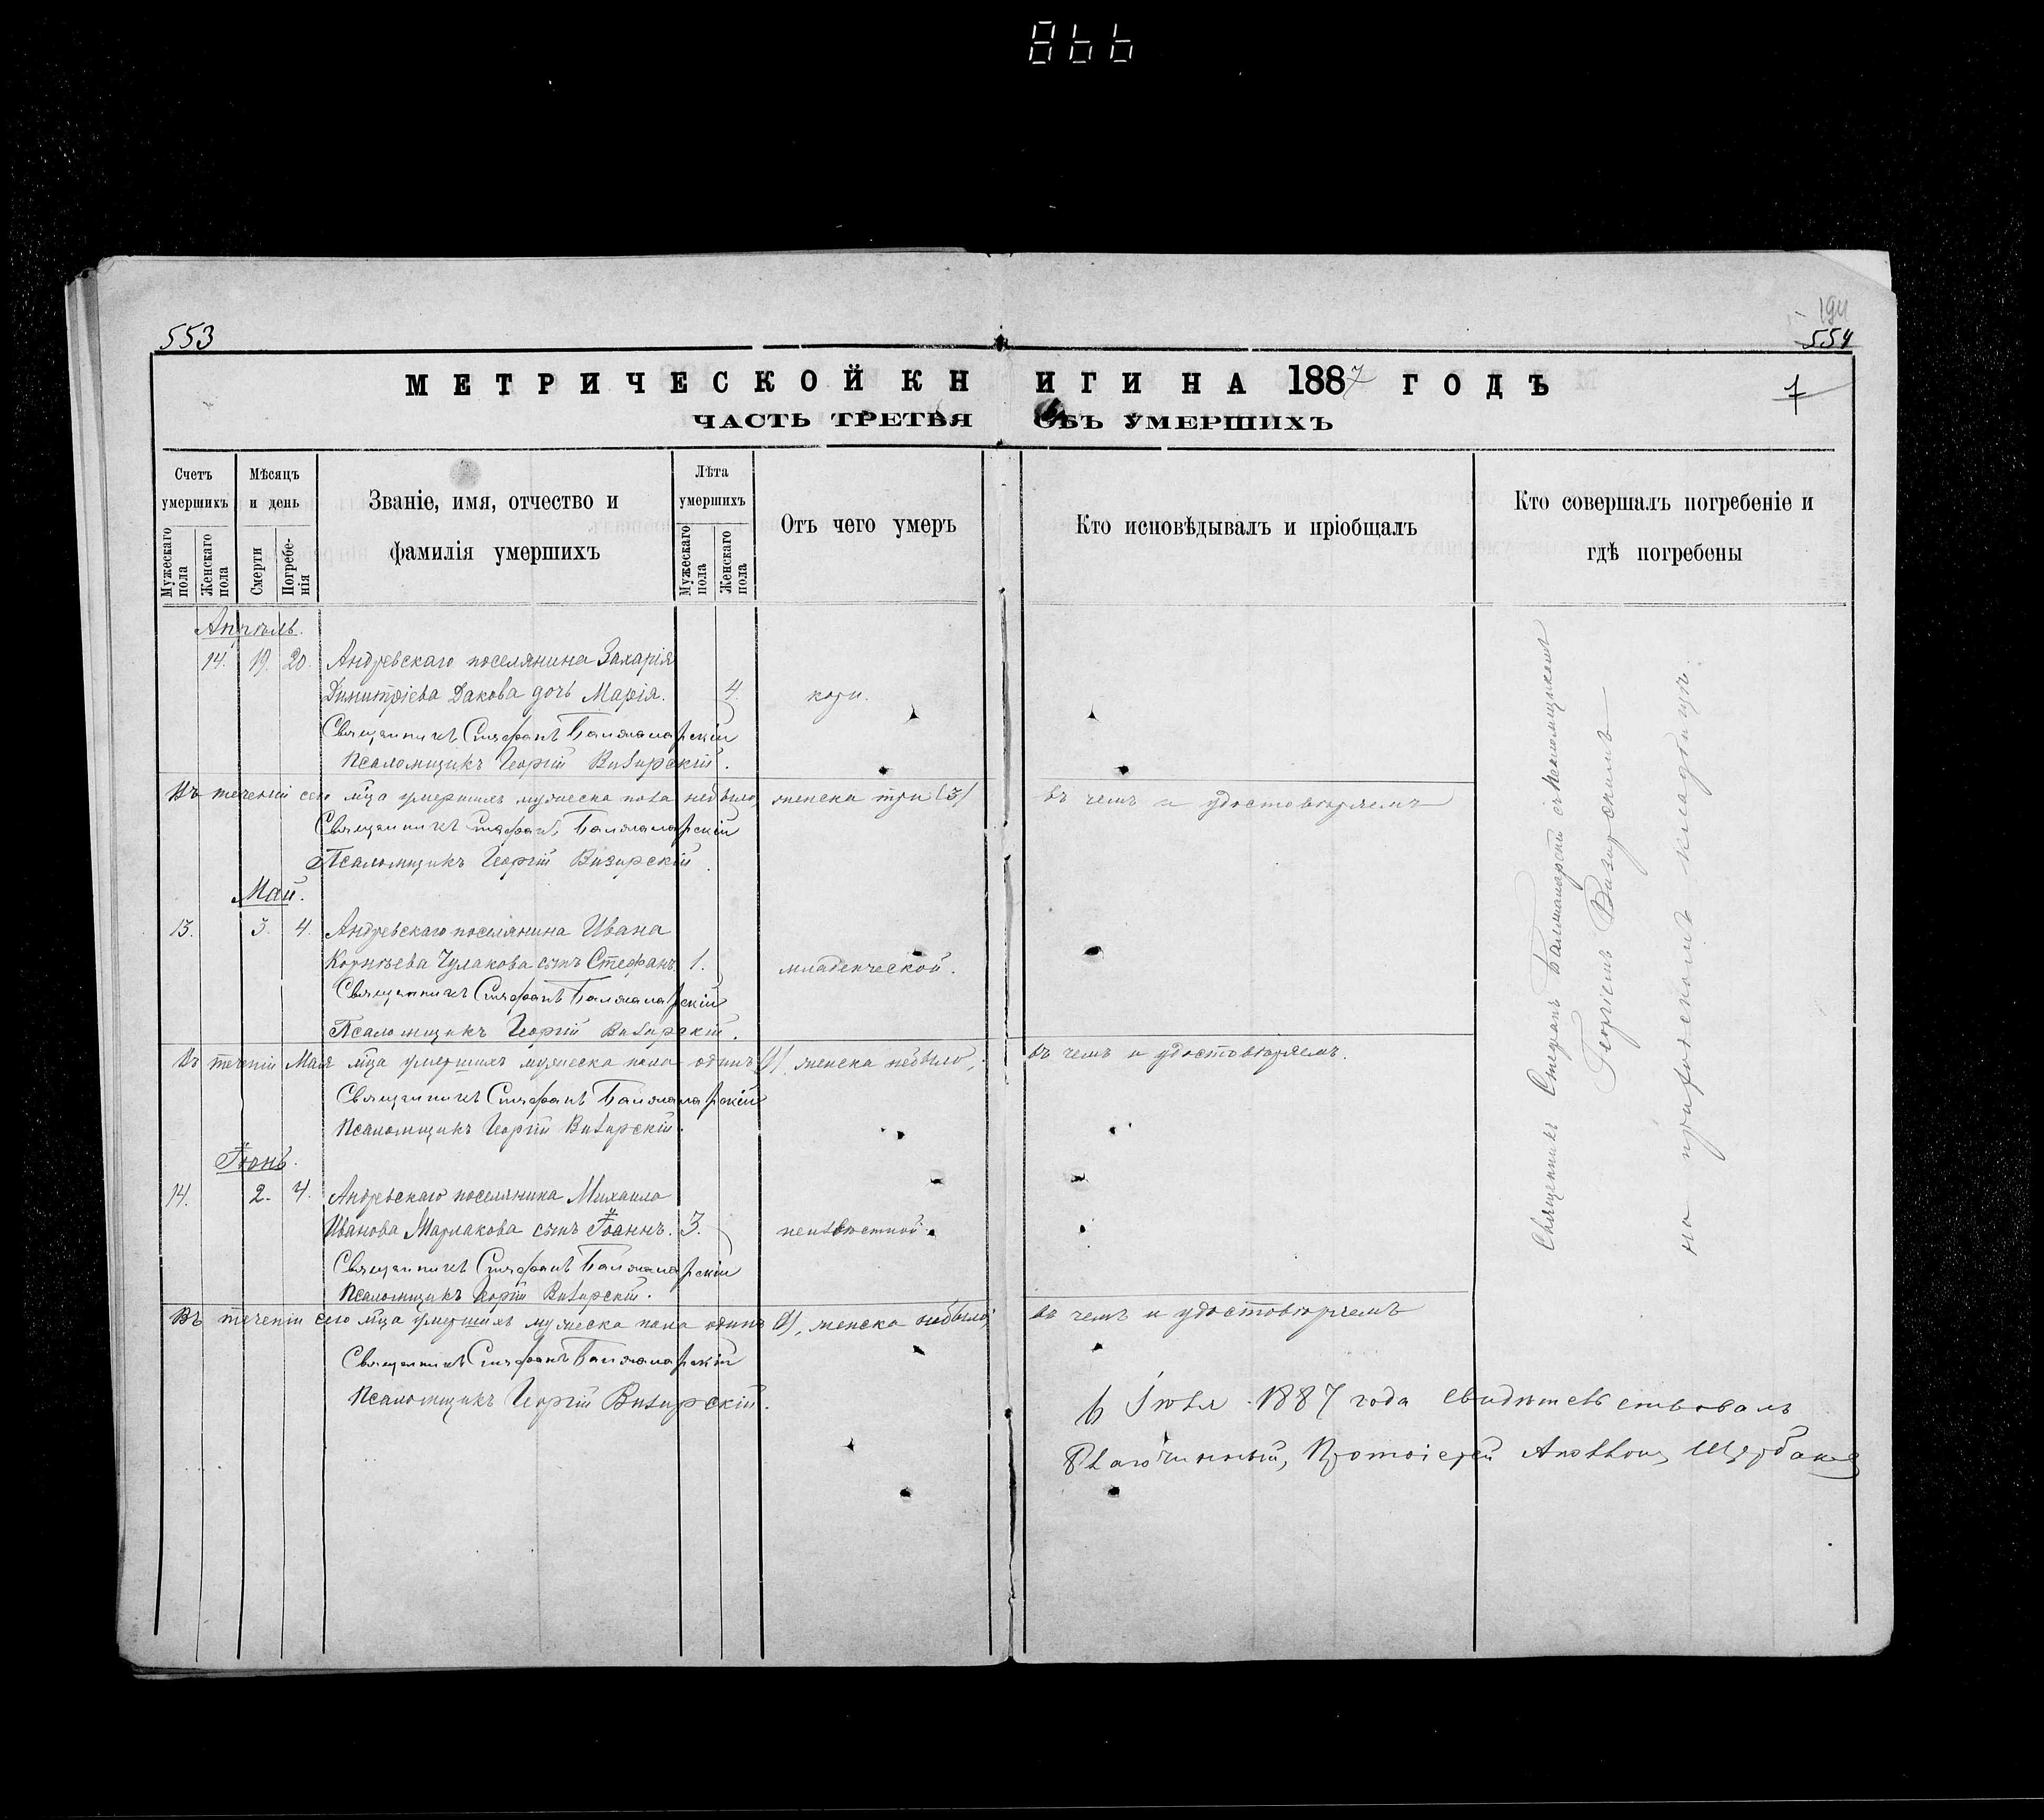 866
194
553
554
МЕТРИЧЕСКОЙ КНИГИ НА 1887 ГОДЪ
7
ЧАСТЬ ТРЕТЬЯ ОБЪ УМЕРШИХЪ
Счетъ умершихъ
Мужескаго пола
Женскаго пола
Мѣсяцъ и день
Смерти
Погребенія
Званіе, имя, отчество и фамилія умершихъ
Лѣта умершихъ
Мужескаго пола
Женскаго пола
Отъ чего умеръ
Кто исповѣдывалъ и пріобщалъ
Кто совершалъ погребеніе и гдѣ погребены
Апрѣль.
14. 19. 20. Андревскаго поселянина Захарія
Димитріева Дакова дочь Марія. 4. кори.
Священникъ Стефанъ
Псаломщикъ Георгій Визирскій.
Въ теченіи сего мца умершихъ мужеска пола небыло, женска три (3) въ чемъ и удостовѣряемъ
Священникъ Стефанъ
Псаломщикъ Георгій Визирскій.
Май.
13. 3. 4. Андревскаго поселянина Ивана
Корнѣева Чулакова сынъ Стефанъ. 1. младенческой.
Священникъ Стефанъ
Псаломщикъ Георгій Визирскій.
Въ теченіи Мая мца умершихъ мужеска пола одинъ (1), женска небыло, въ чемъ и удостовѣряемъ.
Священникъ Стефанъ
Псаломщикъ Георгій Визирскій.
Іюнь.
14. 2. 4. Андревскаго поселянина Михаила
Иванова Марлакова сынъ Іоаннъ. 3. неизвѣстной.
Священникъ Стефанъ
Псаломщикъ Георгій Визирскій.
Въ теченіи сего мца умершихъ мужеска пола одинъ (1), женска небыло, въ чемъ и удостовѣряемъ
Священникъ Стефанъ
Псаломщикъ Георгій Визирскій.
Священникъ Стефанъ съ псаломщикомъ
Георгіемъ Визирскимъ
на приходскомъ кладбищѣ.
6 Іюля 1887 года свидѣтельствовалъ
Благочинный, Протоіерей